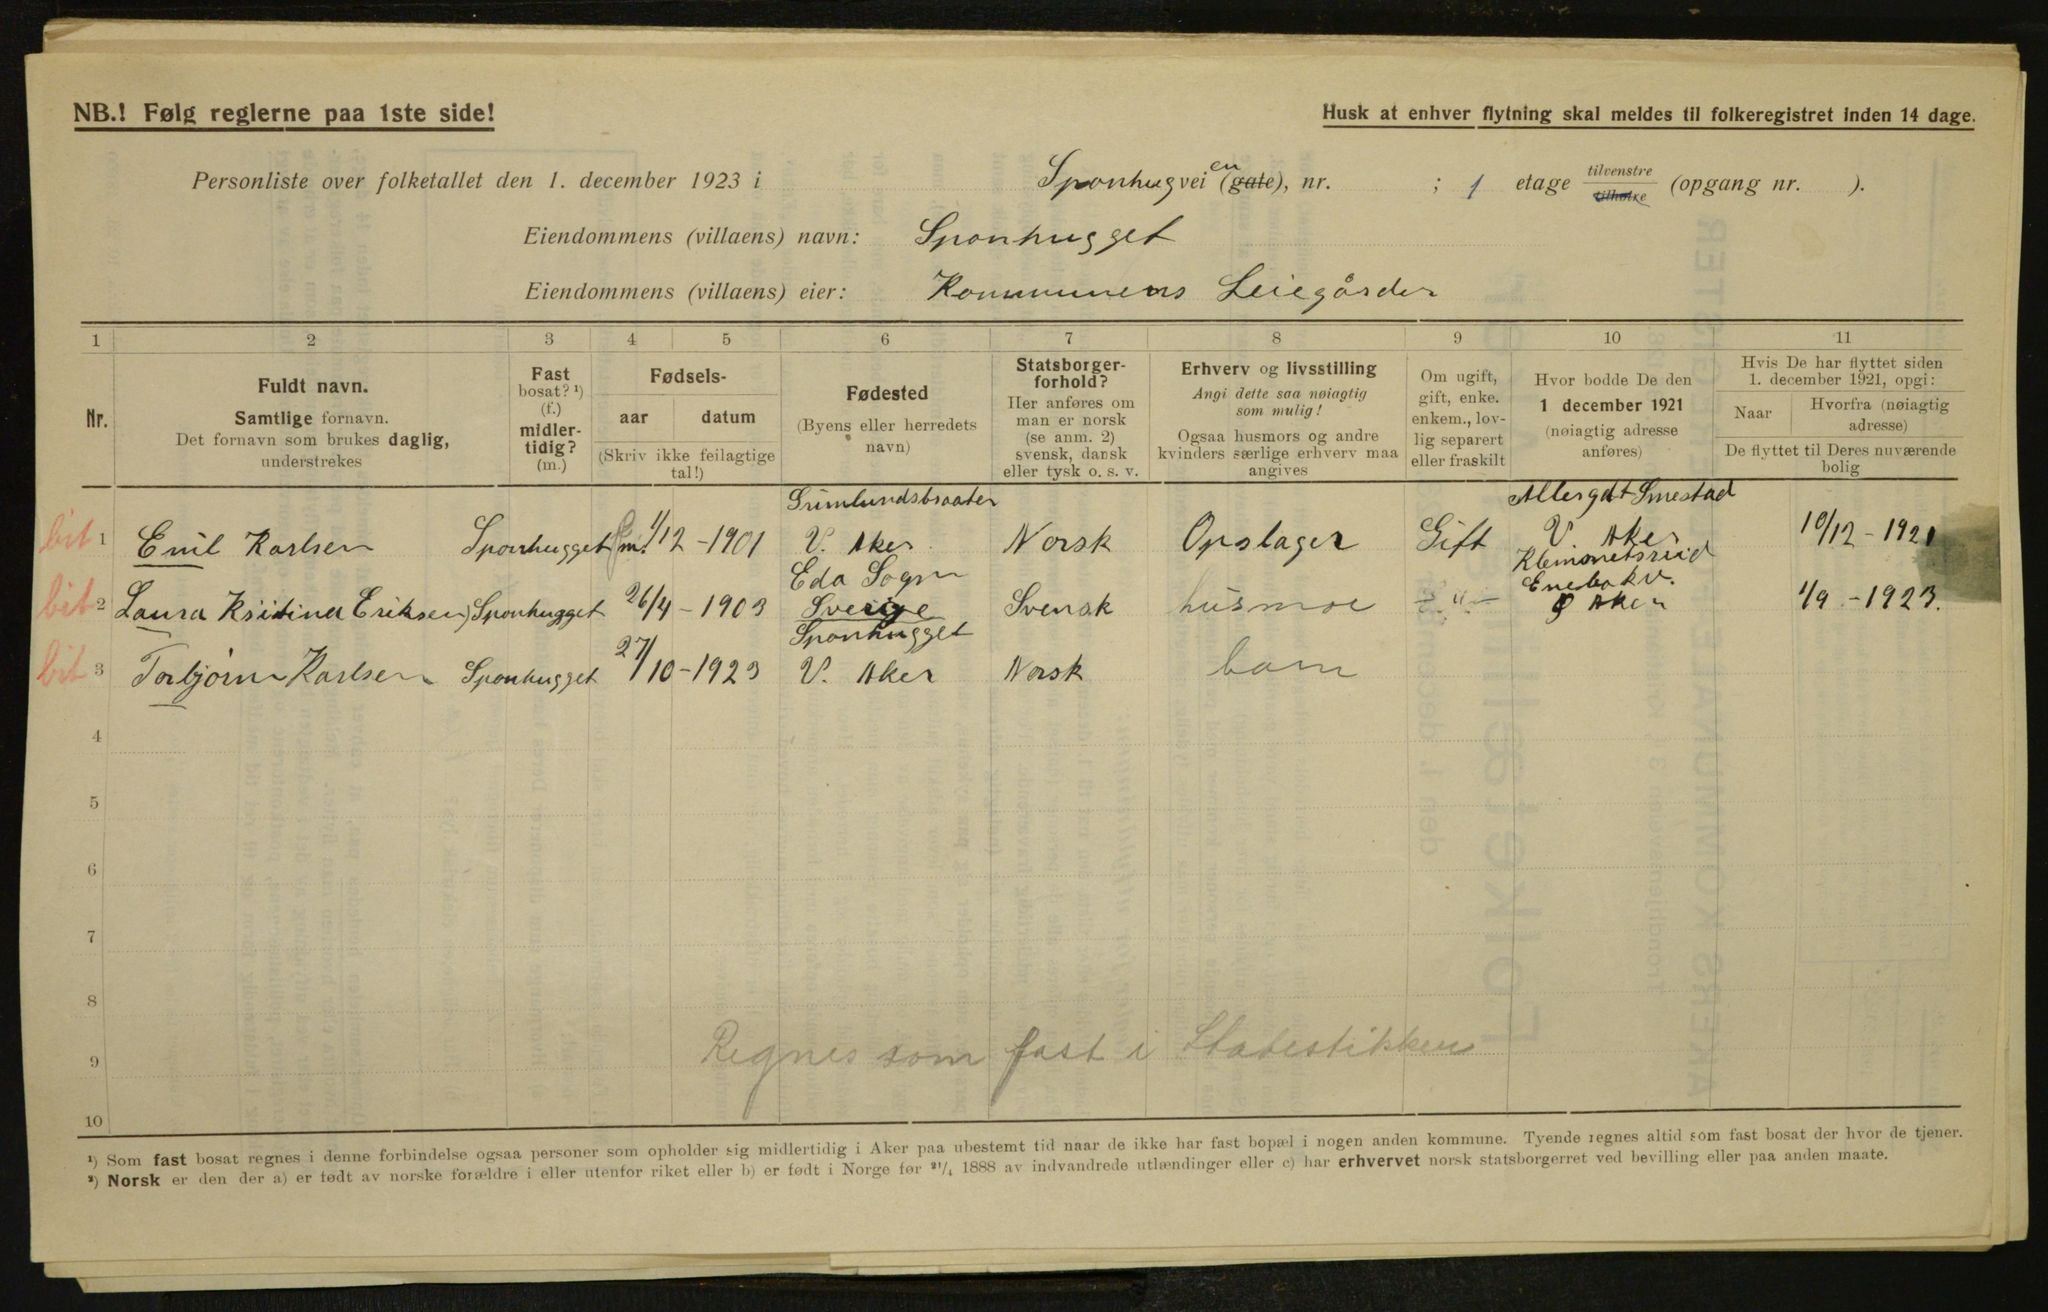 NB.! Følg reglerne paa 1ste side!
Husk at enhver flytning skal meldes til folkeregistret inden 14 dage.
Personliste over folketallet den 1. december 1923 i Sponhugveien (gate), nr. ; 1 etage tilvenstre tilhøire (opgang nr. ).
Eiendommens (villaens) navn: Sponhugget
Eiendommens (villaens) eier: Kommunens Leiegårder
1 2 3 4 5 6 7 8 9 10 11
Nr.
Fuldt navn.
Samtlige fornavn.
Det fornavn som brukes daglig,
understrekes
Fast
bosat? ¹)
(f.)
midler-
tidig?
(m.)
Fødsels-
aar datum
(Skriv ikke feilagtige
tal!)
Fødested
(Byens eller herredets
navn)
Statsborger-
forhold?
Her anføres om
man er norsk
(se anm. 2)
svensk, dansk
eller tysk o. s. v.
Erhverv og livsstilling
Angi dette saa nøiagtig
som mulig!
Ogsaa husmors og andre
kvinders særlige erhverv maa
angives
Om ugift,
gift, enke.
enkem., lov-
lig separert
eller fraskilt
Hvor bodde De den
1 december 1921
(nøiagtig adresse
anføres)
Hvis De har flyttet siden
1. december 1921, opgi:
Naar
Hvorfra (nøiagtig
adresse)
De flyttet til Deres nuværende
bolig
Grimlundsbraaten Allergodt Smestad
1 Emil Karlsen Sponhugget m! 1/12 - 1901 V. Aker Norsk Opslager Gift V. Aker 10/12 - 1921
Eda Sogn Klemmetsrud
Enebakv.
2 Laura Kristina Eriksen) Sponhugget 26/4 - 1903 Sverige Svensk husmor - " - Ø Aker 1/9 - 1923.
Sponhugget
3 Torbjørn Karlsen Sponhugget 27/10 - 1923 V. Aker Norsk barn
4
5
6
7
8
9 Regnes som fast i Statestikken
10
¹) Som fast bosat regnes i denne forbindelse ogsaa personer som opholder sig midlertidig i Aker paa ubestemt tid naar de ikke har fast bopæl i nogen anden kommune. Tyende regnes altid som fast bosat der hvor de tjener.
²) Norsk er den der a) er født av norske forældre i eller utenfor riket eller b) er født i Norge før ²¹/₄ 1888 av indvandrede utlændinger eller c) har erhvervet norsk statsborgerret ved bevilling eller paa anden maate.